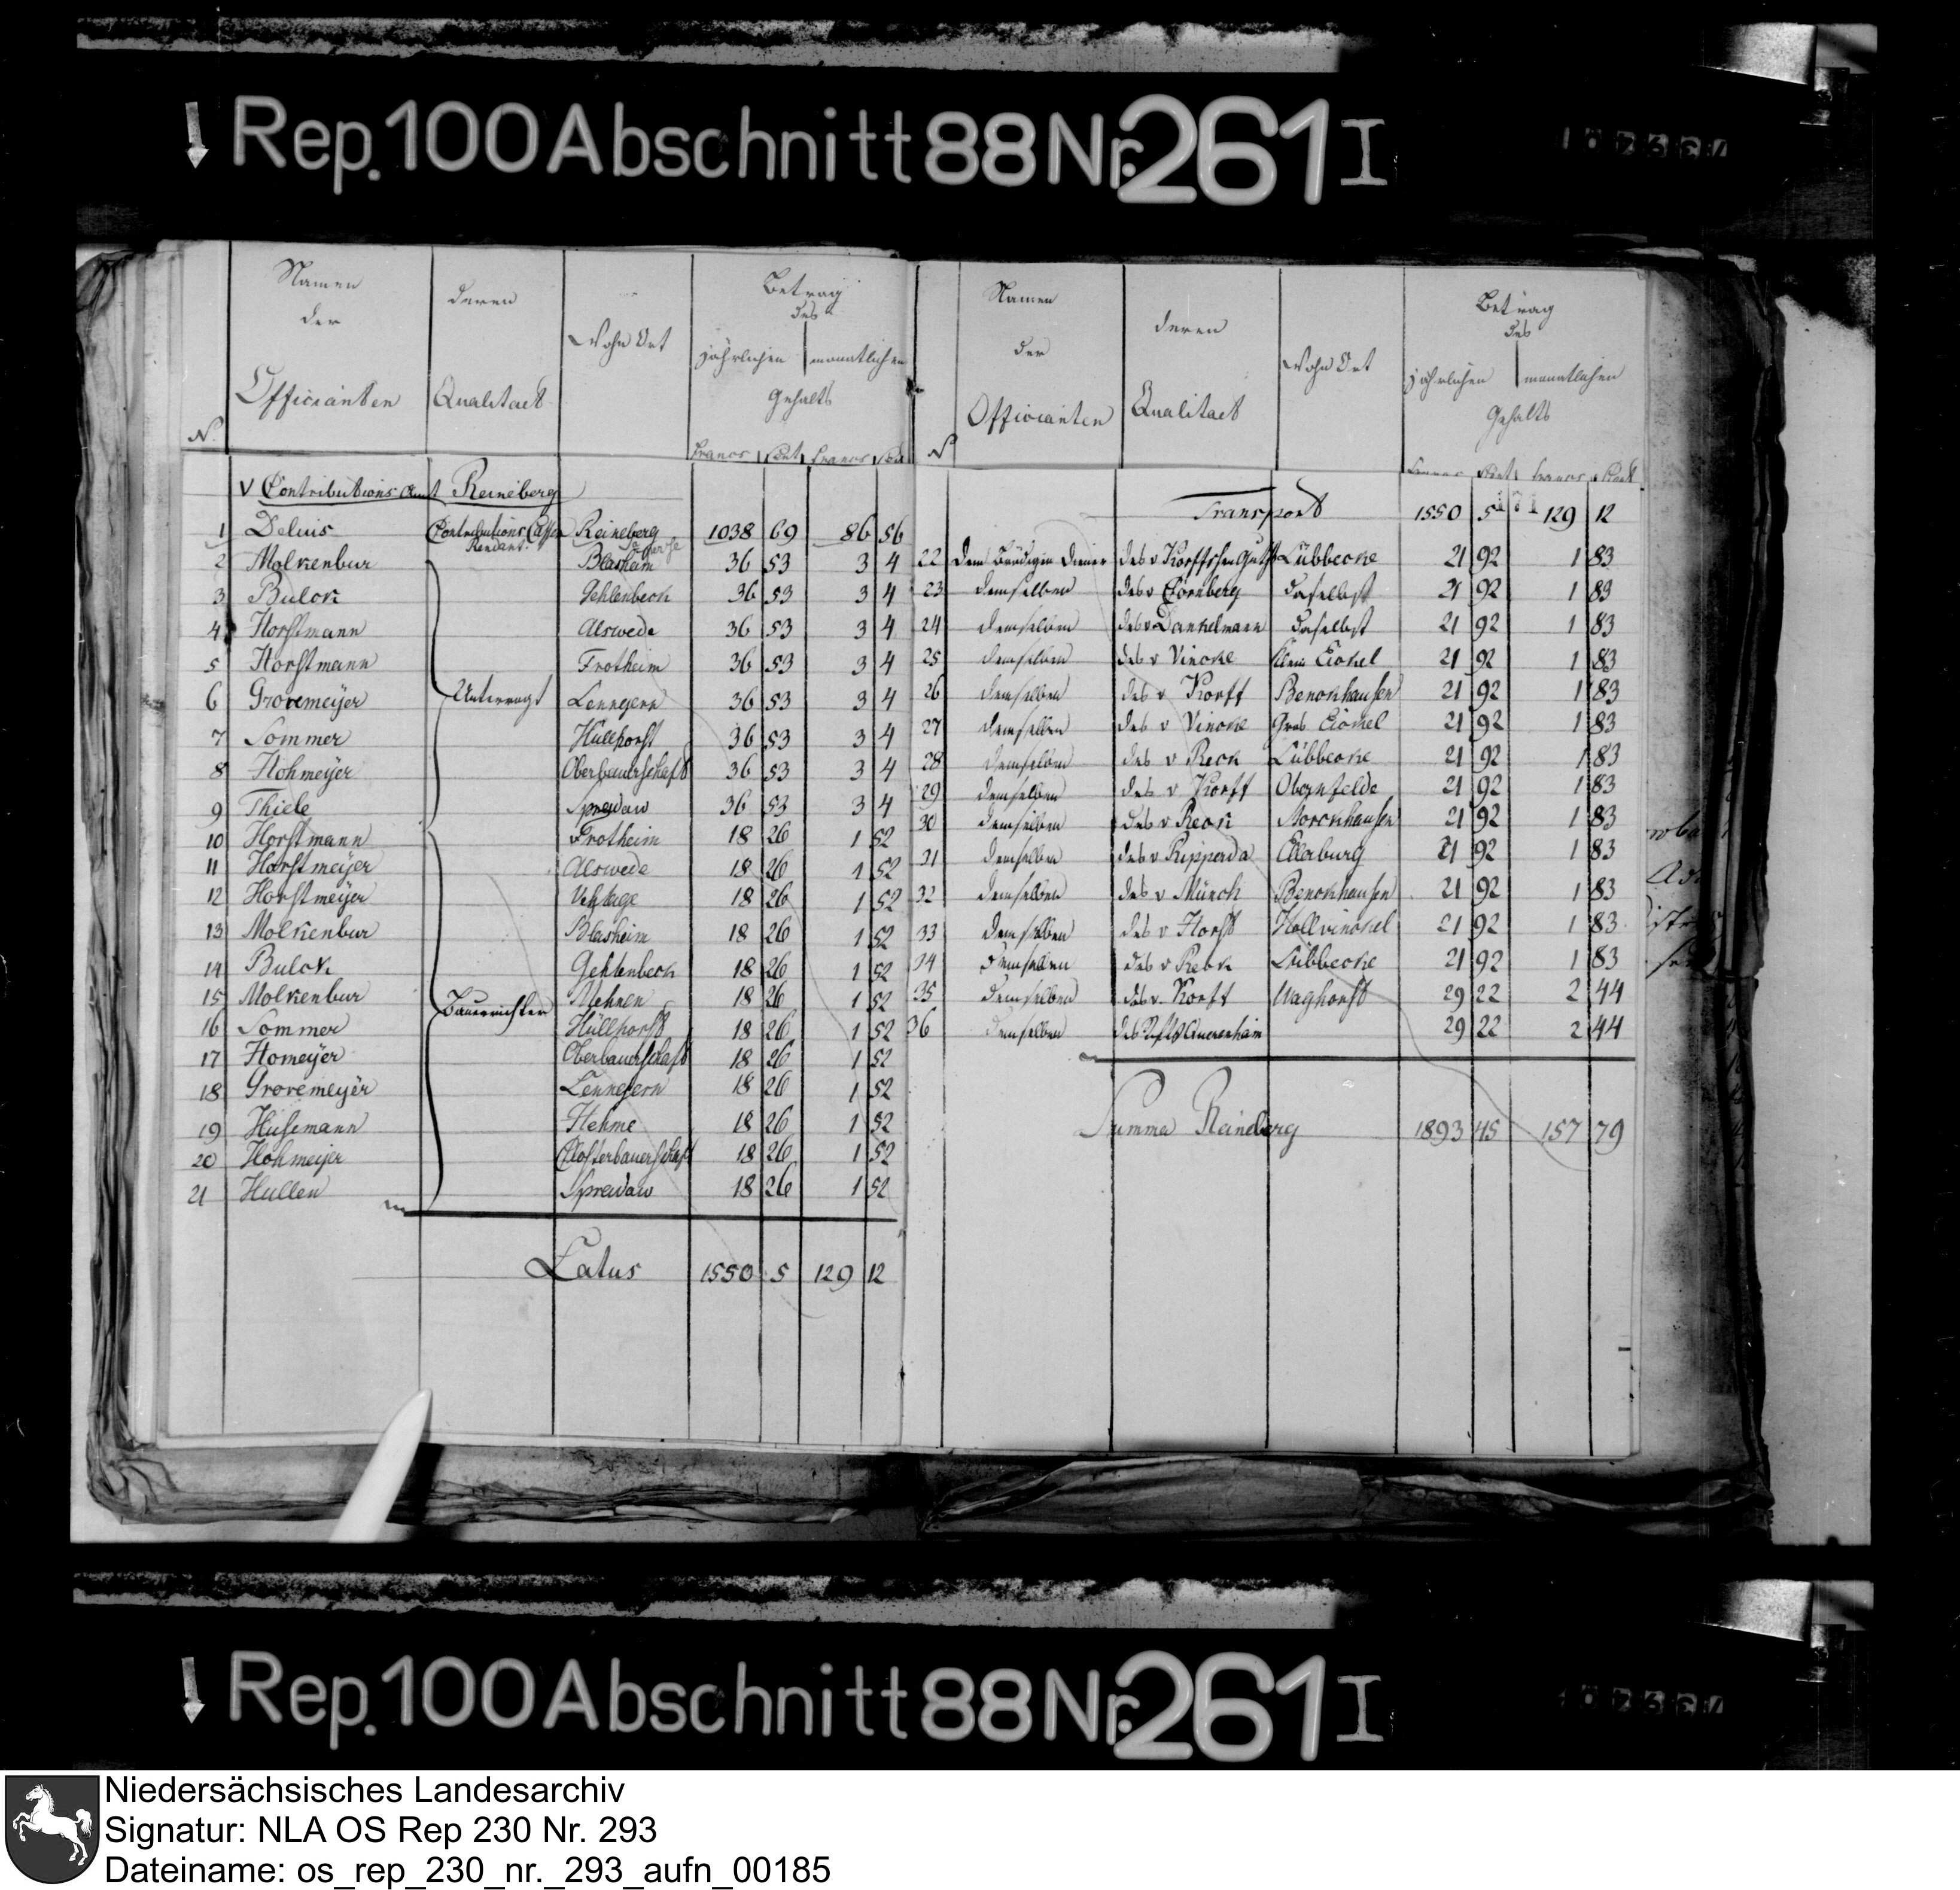 Rep. 100 Abschnitt 88 Nr. 261 I
Namen der Officianten deren Qualitaet Wohn Ort Betrag des jährlichen monatlichen Gehalts
N. Francs Cent Francs Cent
V Contributions Amt Reineberg
1 Delius Contributions Cassen Rendant Reineberg 1038 69 86 56
2 Molkenbur Blasheim 36 53 3 4
3 Bulck Gehlenbeck 36 53 3 4
4 Horstmann Alswede 36 53 3 4
5 Horstmann Frotheim 36 53 3 4
6 Grovemeÿer Untervogt Lenngern 36 53 3 4
7 Sommer Hüllhorst 36 53 3 4
8 Hohmeÿer Oberbauerschaft 36 53 3 4
9 Thiele 36 53 3 4
10 Horstmann Frotheim 18 26 1 52
11 Horstmeÿer Alswede 18 26 1 52
12 Horstmeÿer Vehlage 18 26 1 52
13 Molkenbur Blasheim 18 26 1 52
14 Bulck Gehlenbeck 18 26 1 52
15 Molkenbur Bauerrichter Mehnen 18 26 1 52
16 Sommer Hüllhorst 18 26 1 52
17 Homeÿer Oberbauerschaft 18 26 1 52
18 Grovemeÿer Lenngern 18 26 1 52
19 Husemann Hehme 18 26 1 52
20 Hohmeijer Closterbauerschaft 18 26 1 52
21 Hullen 18 26 1 52
Latus 1550 5 129 12
Namen der Officianten deren Qualitaet Wohn Ort Betrag des jährlichen monatlichen Gehalts
N Francs Cent Francs Cent
Transport 1550 5 129 12
22 Dem Diener des v Korffschen Guths Lübbecke 21 92 1 83
23 demselben des v Cornberg daselbst 21 92 1 83
24 demselben des v Dankelmann daselbst 21 92 1 83
25 demselben des v Vincke Klein Eickel 21 92 1 83
26 demselben des v Korff Benckhausen 21 92 1 83
27 demselben des v Vincke Gros Eickel 21 92 1 83
28 demselben des v Reck Lübbecke 21 92 1 83
29 demselben des v Korff Obernfelde 21 92 1 83
30 demselben des v Reck 21 92 1 83
31 demselben des v Ripperda Ellerburg 21 92 1 83
32 demselben des v Münch Benckhausen 21 92 1 83
33 demselben des v Horst Hollwinckel 21 92 1 83
34 demselben des v Reck Lübbecke 21 92 1 83
35 demselben des v. Korff Waghorst 29 22 2 44
36 demselben des 29 22 2 44
Summa Reineberg 1893 45 157 79
Rep. 100 Abschnitt 88 Nr. 261 I
Niedersächsisches Landesarchiv
Signatur: NLA OS Rep 230 Nr. 293
Dateiname: os_rep_230_nr._293_aufn_00185